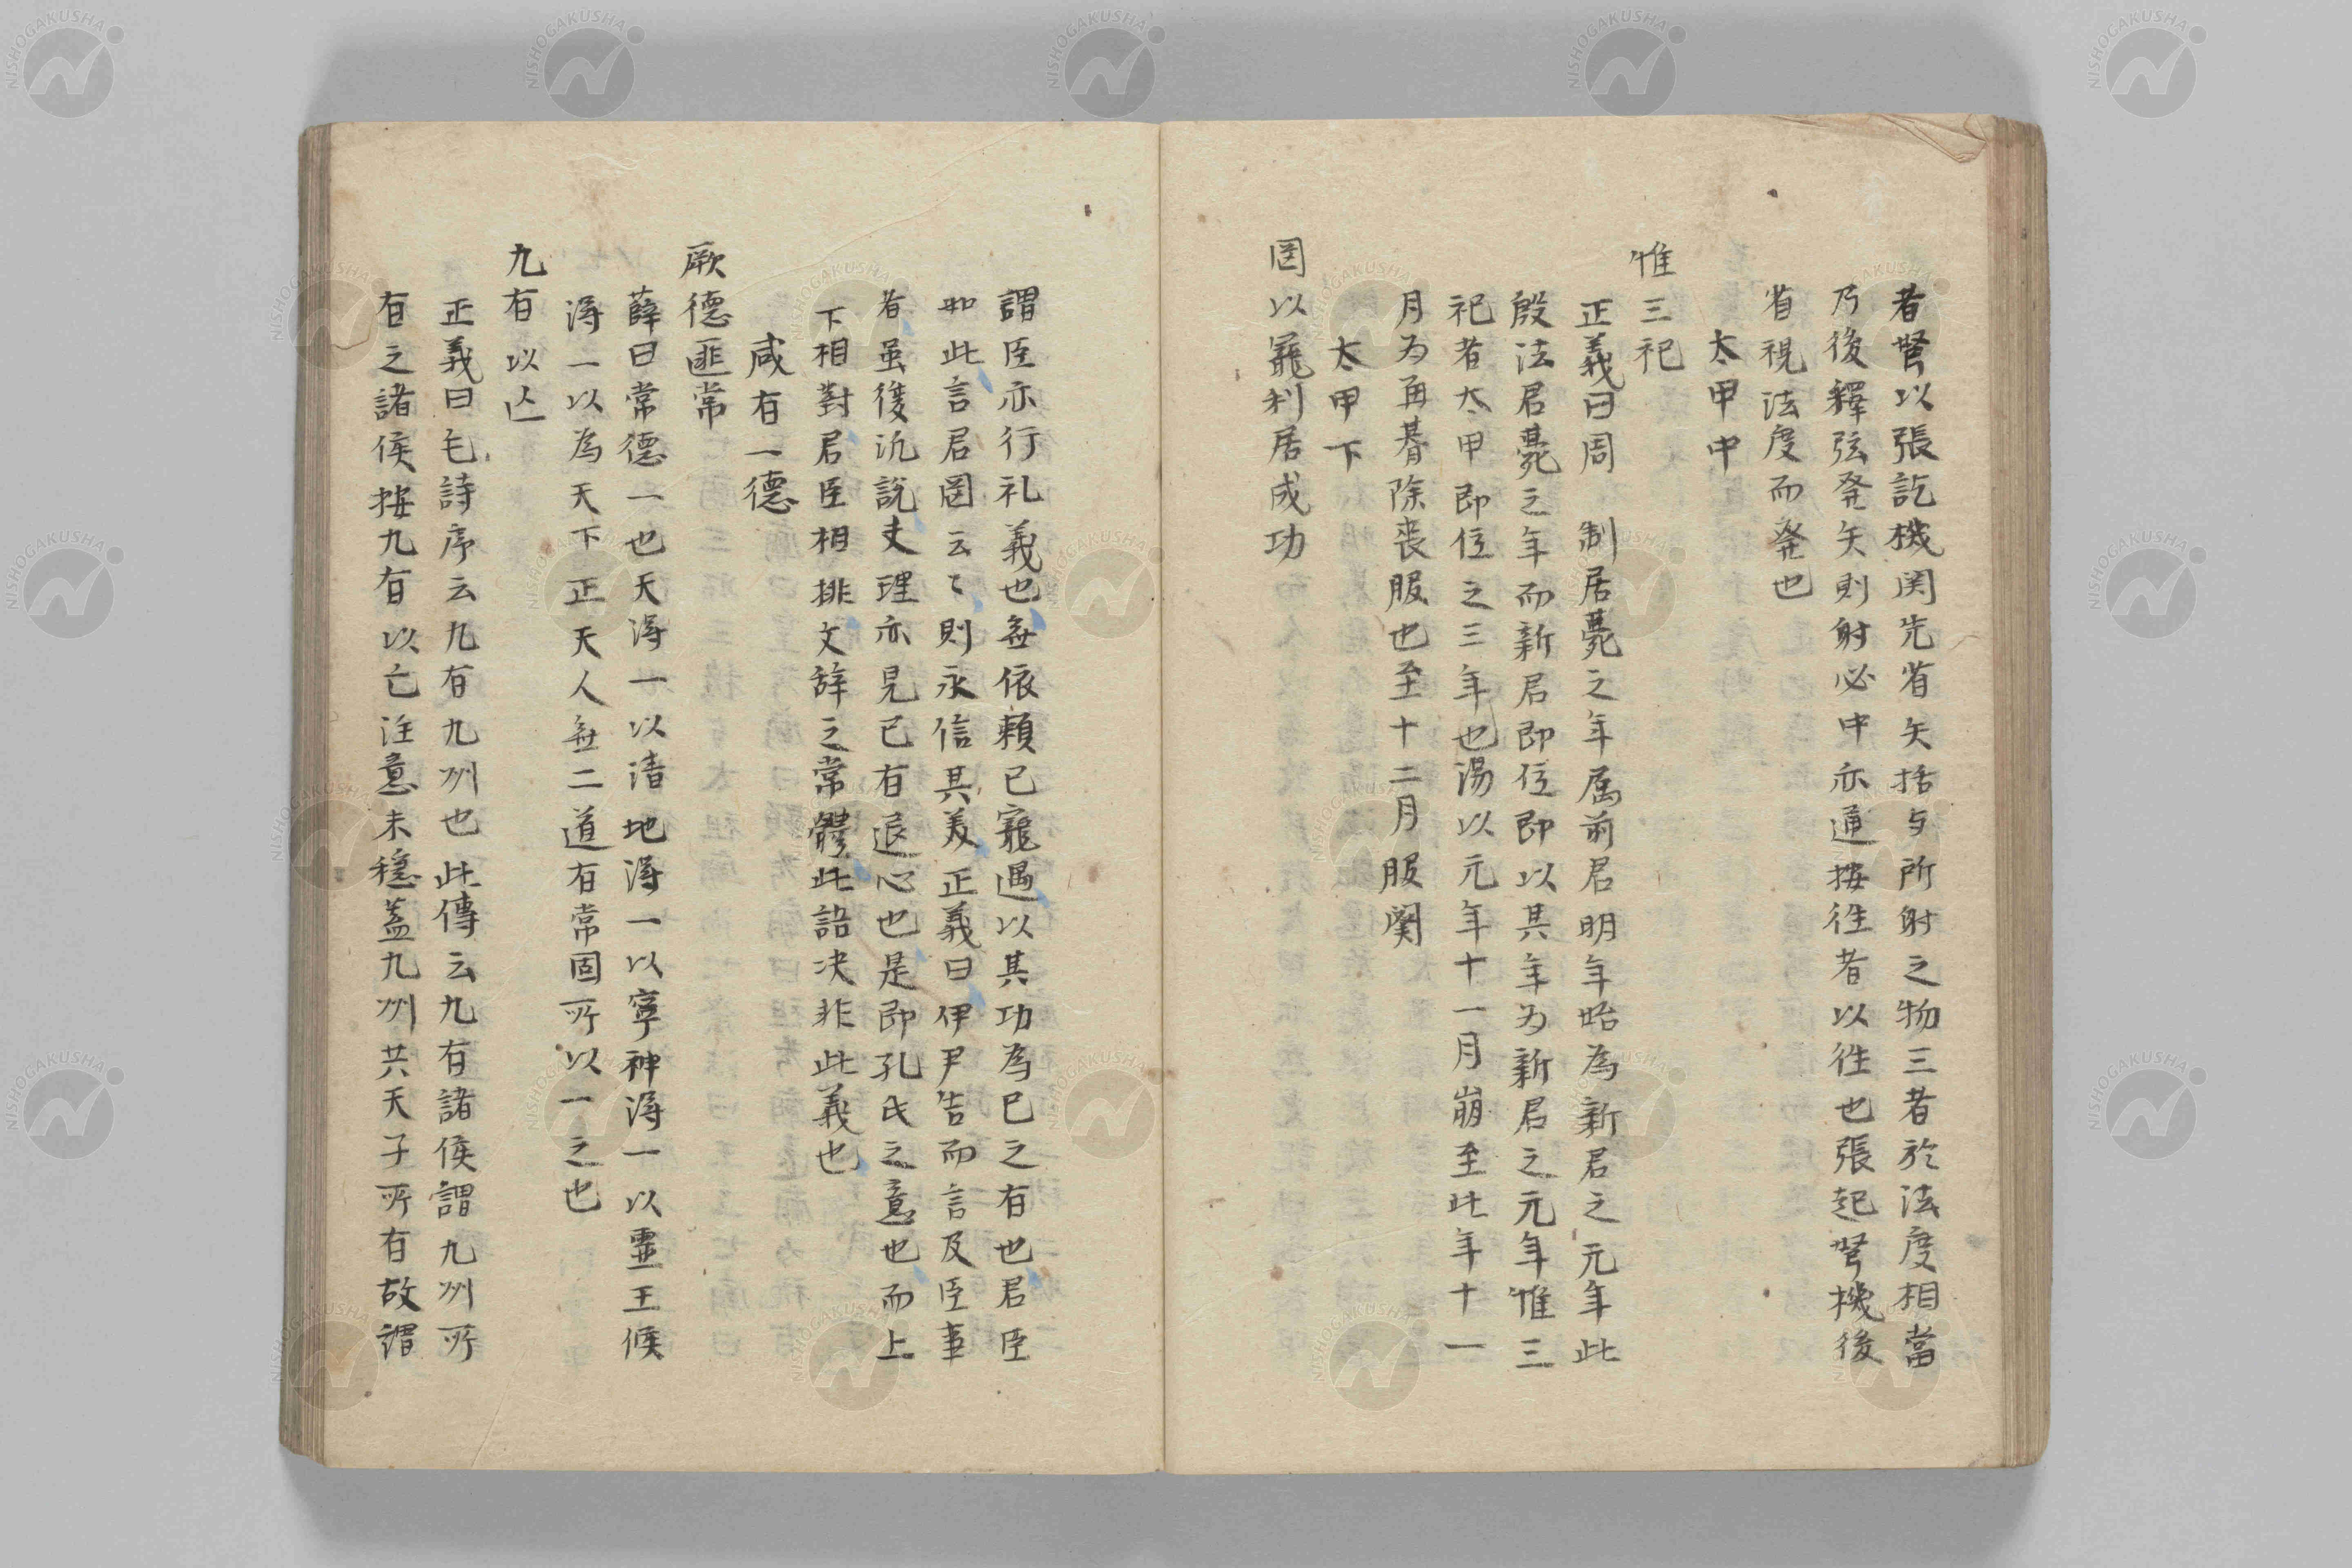 者弩以張訖機関先省矢括与所射之物三者於法度相當
乃後釋弦発矢則射必中亦通按徃者以徃也張起弩機後
省視法度而発也
太甲中
惟三祀
正義曰周 制居薨之年属前君明年始為新君之元年此
殷法君薨之年而新君即位即以其年为新君之元年惟三
祀者太甲即位之三年也湯以元年十一月崩至此年十一
月为再朞除喪服也至十二月服闋
太甲下
罔以寵利居成功
謂臣亦行礼義也無依頼已寵遇以其功為已之有也君臣
如此言君罔云〻則永信其美正義曰伊尹告而言及臣事
者虽復汎說丈理亦見已有退心也是即孔氏之意也而上
下相對君臣相排文辞之常體此語决非此義也
咸有一德
厥德匪常
薛曰常德一也天淂一以清地淂一以寧神淂一以霊王候
淂一以為天下正天人無二道有常固所以一之也
九有以亾
正義曰毛詩序云九有九州也此傳云九有諸侯謂九州所
有之諸侯按九有以亡注意未穏盖九州共天子所有故謂
NISHOGAKUSHA